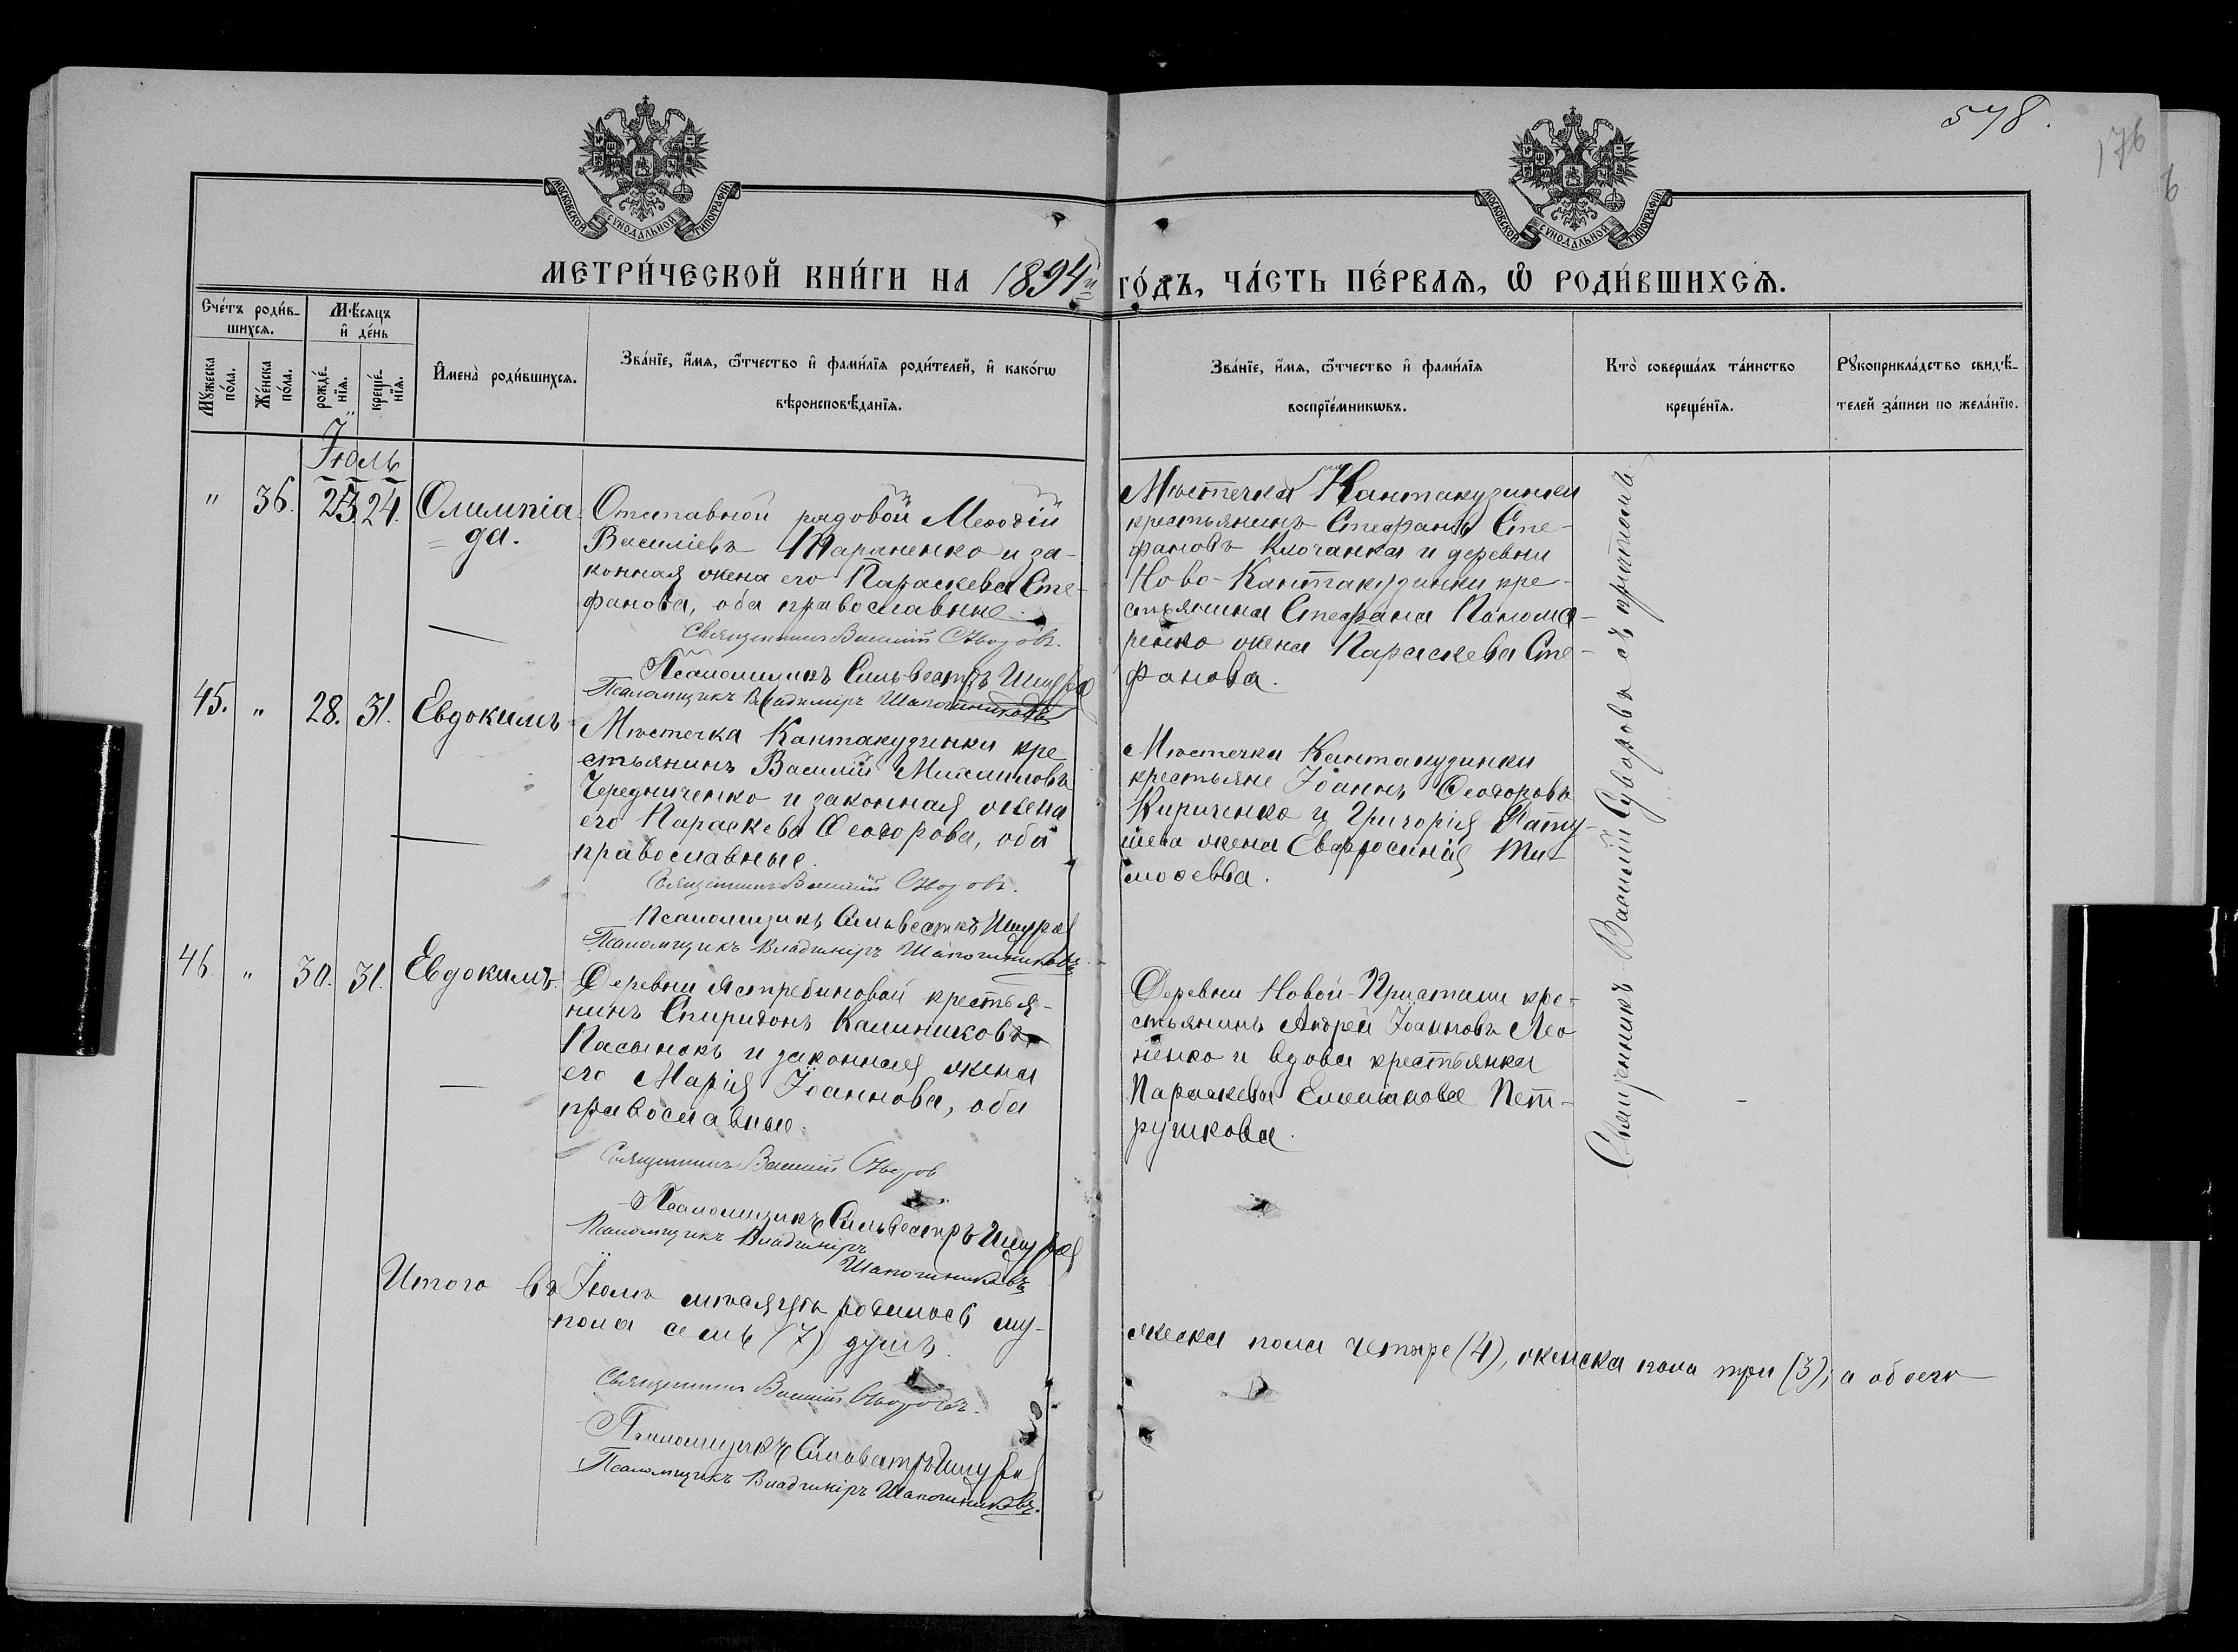 578.
176
6
МОСКОВСКОЙ СѴНОДАЛЬНОЙ ТИПОГРАФІИ
МОСКОВСКОЙ СѴНОДАЛЬНОЙ ТИПОГРАФІИ
МЕТРИ́ЧЕСКОЙ КНИ́ГИ НА 1894й ГО́ДЪ, ЧА́СТЬ ПЕ́РВАЯ, Ѡ҆ РОДИ́ВШИХСЯ.
Сче́тъ роди́в-
шихся.
Мѣ́сяцъ
и҆ де́нь
Мꙋ́жеска
по́ла.
Же́нска
по́ла.
рожде́-
нїя.
креще́-
нїя.
И҆мена̀ роди́вшихся.
Зва́нїе, и҆́мя, ѻ҆́тчество и҆ фами́лїя роди́телей, и҆ како́гѡ
вѣроисповѣ́данїя.
Зва́нїе, и҆́мя, ѻ҆́тчество и҆ фами́лїя
воспрїе́мникѡвъ.
Кто̀ соверша́лъ та́инство
креще́нїя.
Рꙋкоприкла́дство свидѣ́-
телей за́писи по жела́нїю.
Іюль
" 36. 23. 24. Олимпіа-
да.
Отставной рядовой Меѳодій
Василіевъ Тараненко и за-
конная жена его Параскева Сте-
фанова, оба православные.
Священникъ Василій Суворовъ.
Псаломщикъ Сильвестръ Шпура
Псаломщикъ Владиміръ Шапошниковъ
Мѣстечка Кантакузинки
крестьянинъ Стефанъ Сте-
фановъ Клочанка и деревни
Ново-Кантакузинки кре-
стьянина Стефана Понома-
ренко жена Параскева Сте-
фанова.
45. " 28. 31. Евдокимъ
Мѣстечка Кантакузинки кре
стьянинъ Василій Михаиловъ
Чередниченко и законная жена
его Параскева Ѳеодорова, оба
православные.
Священникъ Василій Суворовъ.
Псаломщикъ Сильвестръ Шпура
Псаломщикъ Владиміръ Шапошниковъ
Мѣстечка Кантакузинки
крестьяне Іоаннъ Ѳеодоровъ
Кириченко и Григорія
жена Евфросинія Ти-
моѳеева.
46. " 30. 31. Евдокимъ.
Деревни Ястребиновой крестья-
нинъ Спиридонъ Калиниковъ
Пасынокъ и законная жена
его Марія Іоаннова, оба
православные.
Священникъ Василій Суворов
Псаломщикъ Сильвестръ Шпура
Псаломщикъ Владиміръ
Шапошниковъ
Деревни Новой-Пристани кре-
стьянинъ Андрей Іоанновъ Лео
ненко и вдова крестьянка
Параскева Емеліанова Пет-
рушкова.
Священникъ Василій Суворовъ съ причтомъ
Итого въ Іюлѣ мѣсяцѣ родилось му-
жеска пола четыре (4), женска пола три (3); а обоего
пола семь (7) душъ.
Священникъ Василій Суворовъ.
Псаломщикъ Сильвестръ Шпура
Псаломщикъ Владиміръ Шапошниковъ.